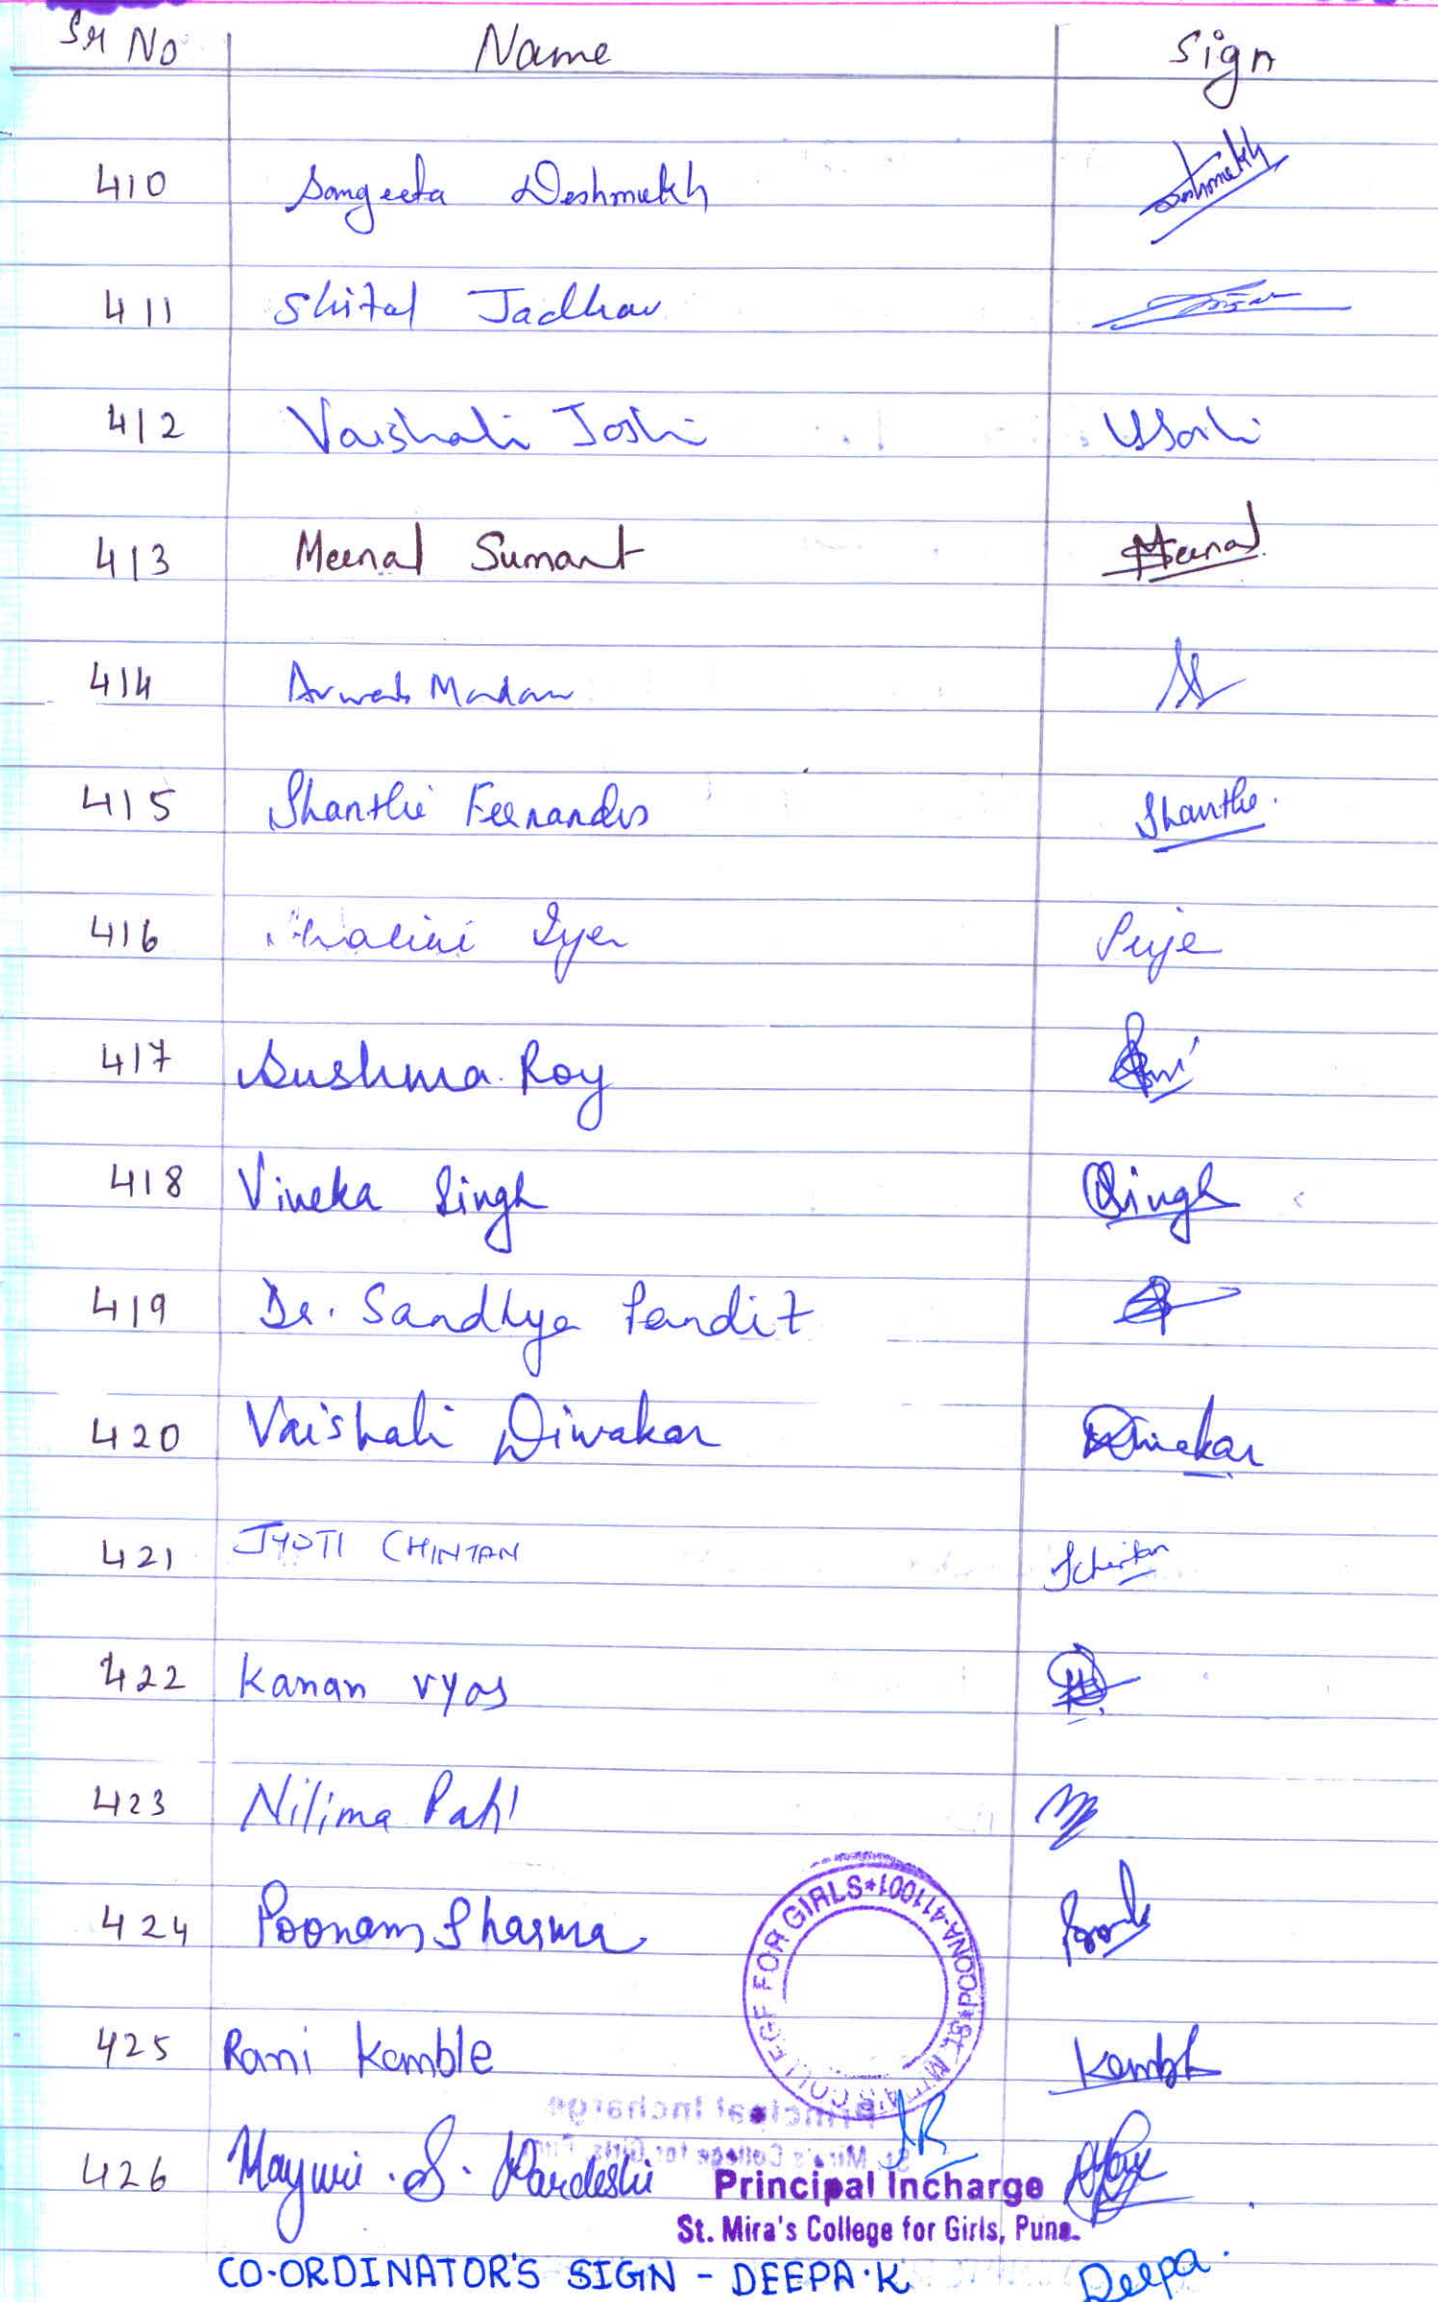 Sr No Name Sign
410 Sangeeta Deshmukh Deshmukh
411 Shital Jadhav
412 Vaishali Joshi VJoshi
413 Meenal Sumant Meenal
414
415 Shanthi Fernandes Shanthi.
416 Iyer
417 Sushma Roy
418 Viveka Singh Singh
419 Dr. Sandhya Pandit
420 Vaishali Diwakar Diwakar
421 JYOTI CHINTAN JChintan
422 Kanan Vyas
423 Nilima Patil
424 Poonam Sharma
ST. MIRA'S COLLEGE FOR GIRLS*POONA-411001*
425 Rani Kamble Kamble
426 Mayuri . S. Pardeshi
Principal Incharge
St. Mira's College for Girls, Pune.
CO-ORDINATOR'S SIGN - DEEPA.K Deepa.